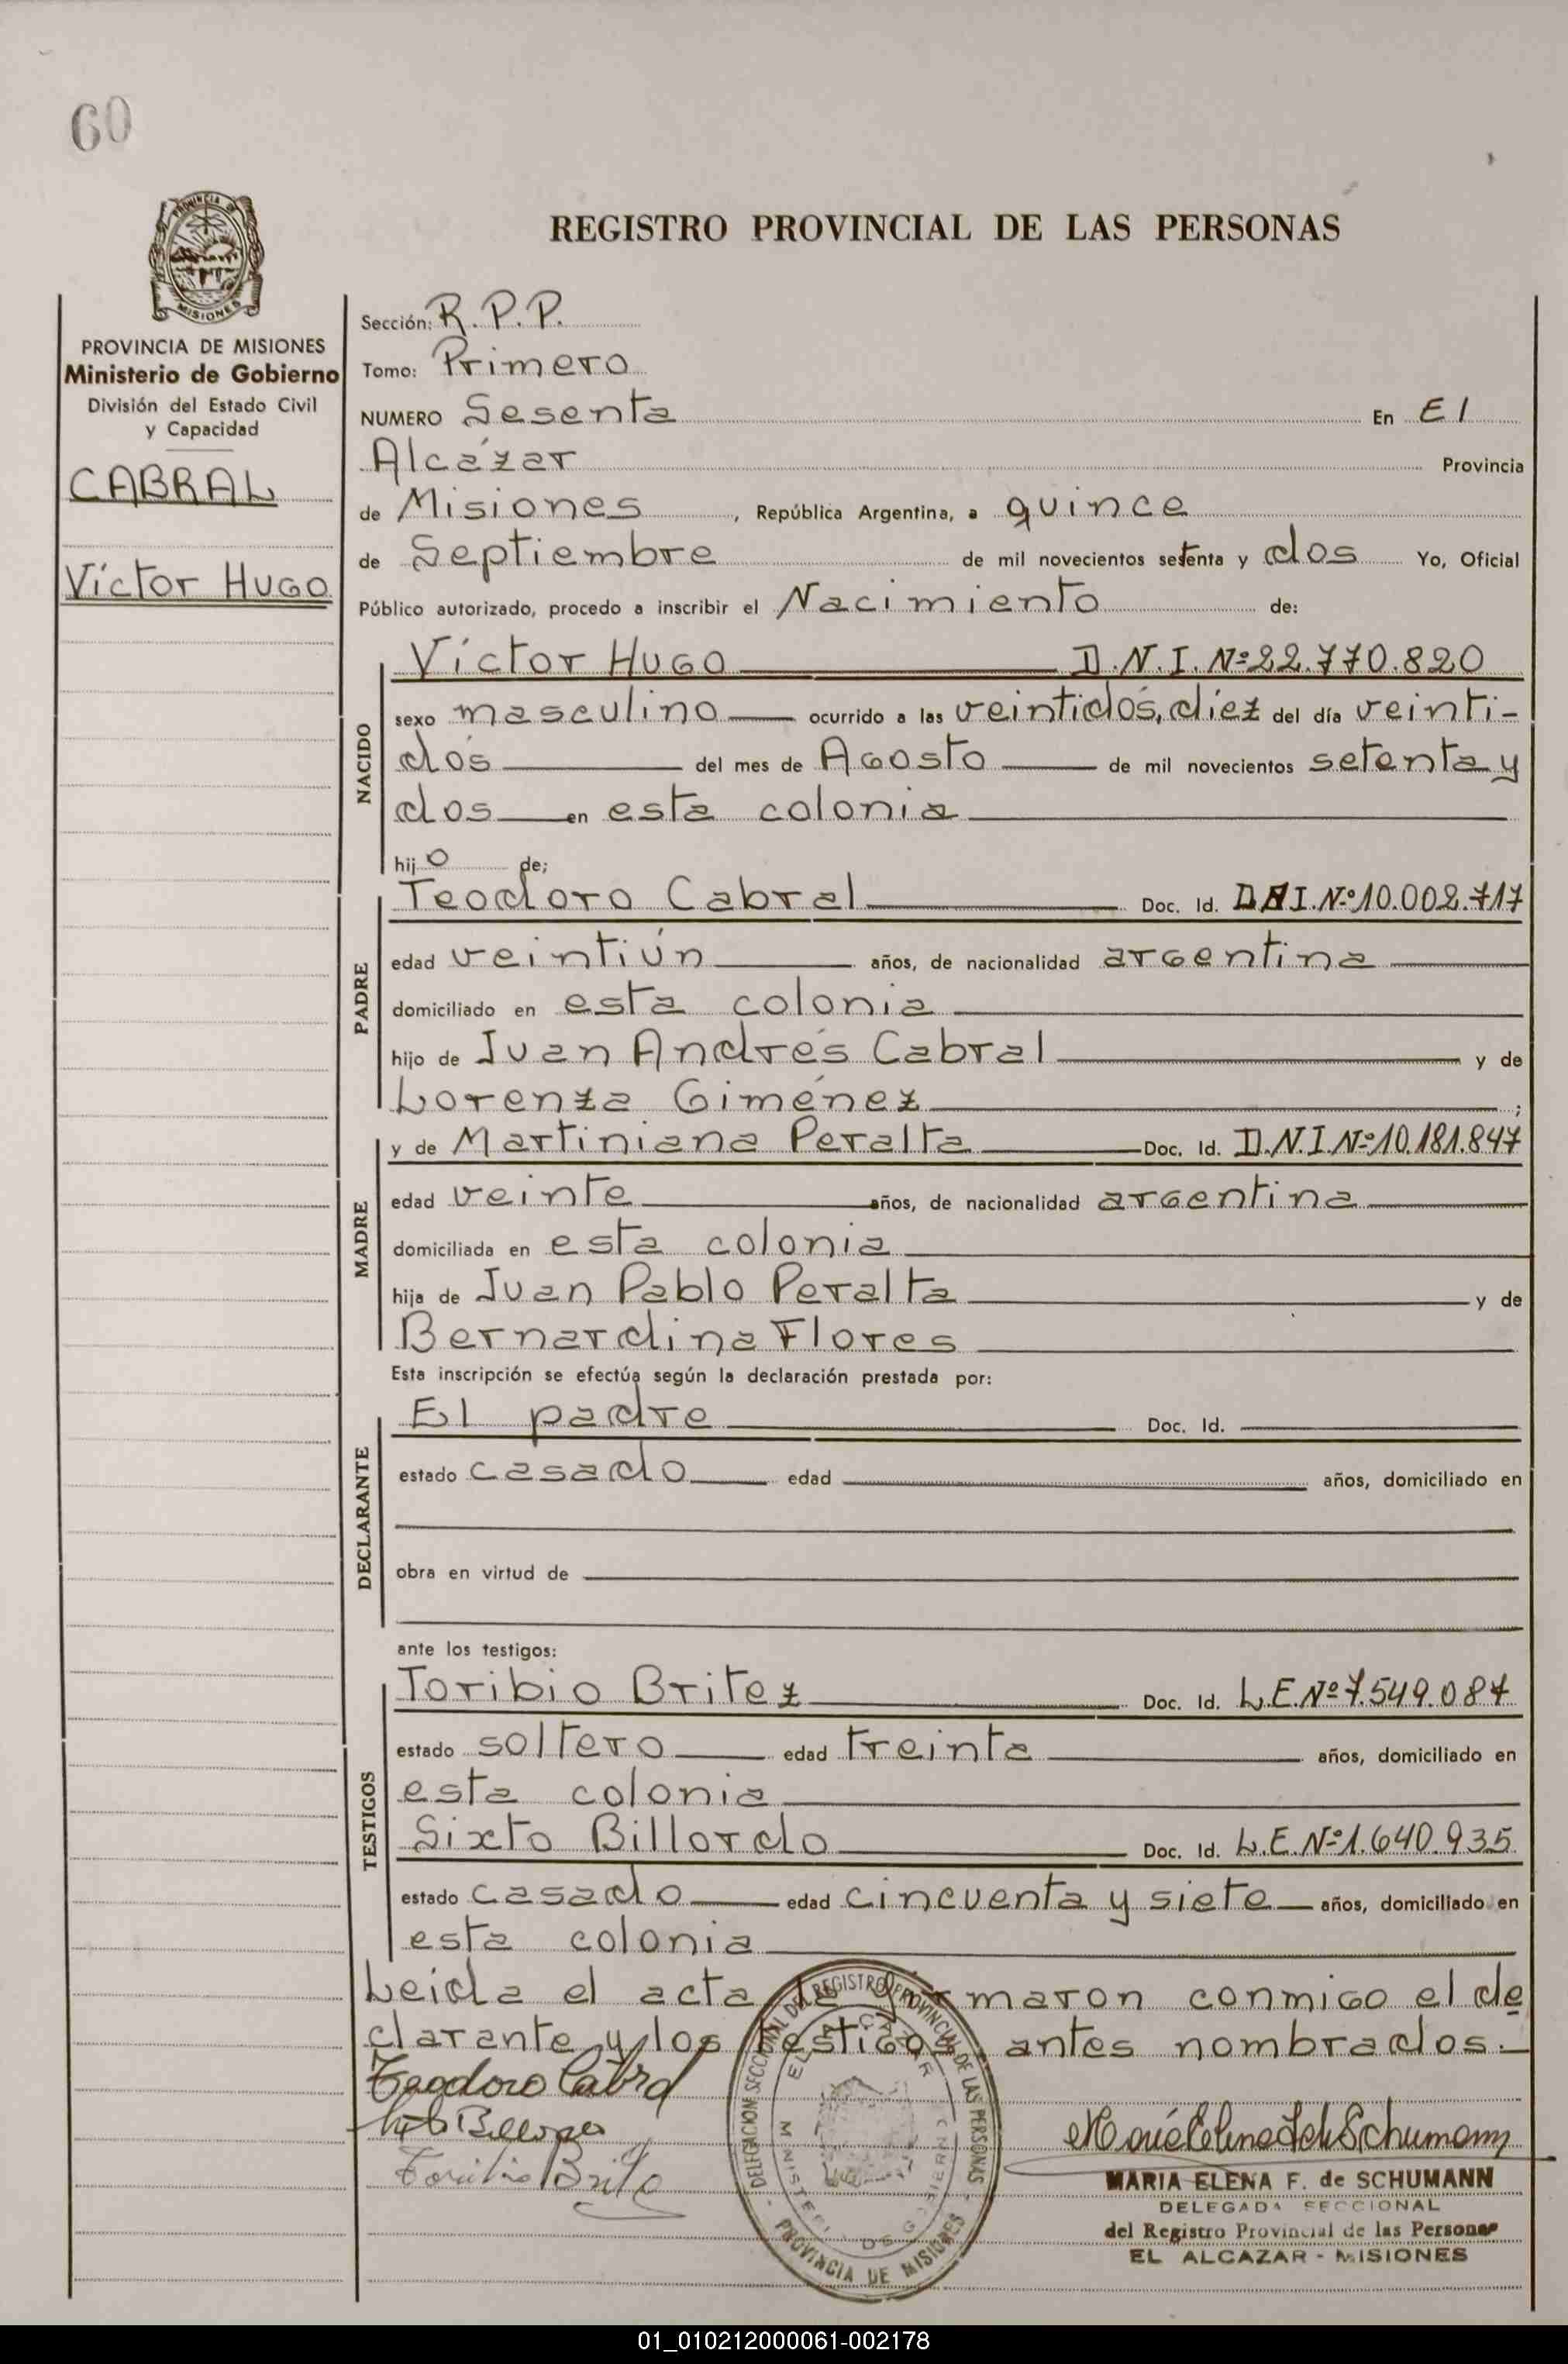 60
REGISTRO PROVINCIAL DE LAS PERSONAS
PROVINCIA DE MISIONES
Ministerio de Gobierno
División del Estado Civil
y Capacidad
CABRAL
Víctor HUGO
Sección: R.P.P.
Tomo: Primero
NUMERO Sesenta En El
Alcázar Provincia
de Misiones, República Argentina, a quince
de Septiembre de mil novecientos setenta y dos Yo, Oficial
Público autorizado, procedo a inscribir el Nacimiento de:
NACIDO
Víctor HUGO D.N.I. Nº 22.770.820
sexo masculino ocurrido a las veintidós, diez del día veinti-
dós del mes de Agosto de mil novecientos setenta y
dos en esta colonia
hijo de;
PADRE
Teodoro Cabral Doc. Id. D.N.I. Nº 10.002.717
edad veintiún años, de nacionalidad argentina
domiciliado en esta colonia
hijo de Juan Andrés Cabral y de
Lorenza Giménez ;
MADRE
y de Martiniana Peralta Doc. Id. D.N.I. Nº 10.181.847
edad veinte años, de nacionalidad argentina
domiciliada en esta colonia
hija de Juan Pablo Peralta y de
Bernardina Flores
Esta inscripción se efectúa según la declaración prestada por:
DECLARANTE
El padre Doc. Id.
estado casado edad años, domiciliado en
obra en virtud de
ante los testigos:
TESTIGOS
Toribio Britez Doc. Id. L.E. Nº 7.549.087
estado soltero edad treinta años, domiciliado en
esta colonia
Sixto Billordo Doc. Id. L.E. Nº 1.640.935
estado casado edad cincuenta y siete años, domiciliado en
esta colonia
Leida el acta la firmaron conmigo el de
clarante y los testigos antes nombrados.-
Teodoro Cabral
Toribio Britez
DELEGACION SECCIONAL DEL REGISTRO PROVINCIAL DE LAS PERSONAS
EL ALCAZAR
MINISTERIO DE GOBIERNO
- PROVINCIA DE MISIONES -
Maria Elena F. de Schumann
MARIA ELENA F. de SCHUMANN
DELEGADA SECCIONAL
del Registro Provincial de las Personas
EL ALCAZAR - MISIONES
01_010212000061-002178